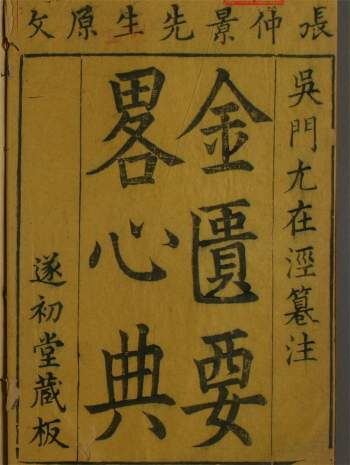 張仲景先生原文
吳門尤在涇纂注
金匱要
畧心典
遂初堂蔵板